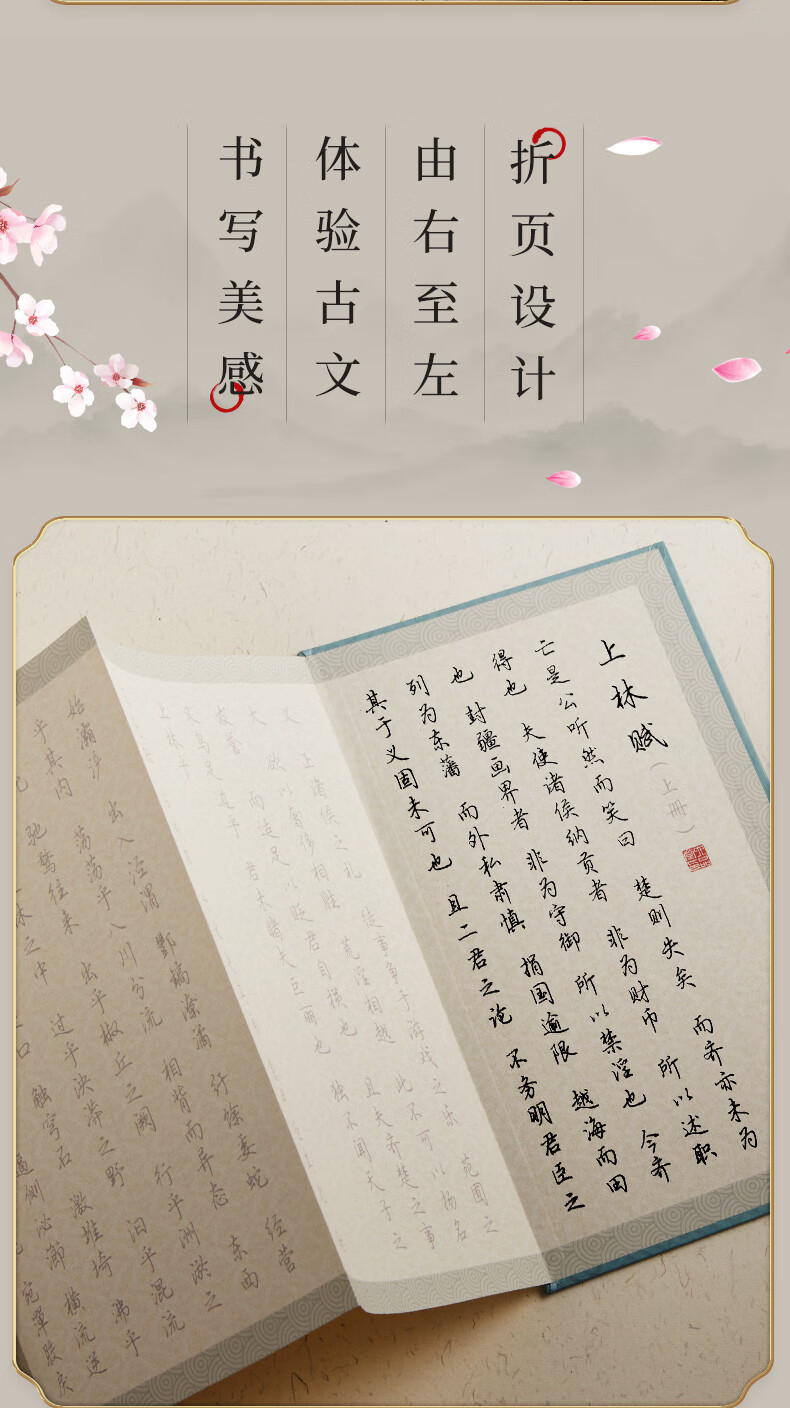 折页设计
由右至左
体验古文
书写美感
上林赋(上册)
亡是公听然而笑曰 楚则失矣 而齐亦未为
得也 夫使诸侯纳贡者 非为财币 所以述职
也 封疆画界者 非为守御 所以禁淫也 今齐
列为东藩 而外私肃慎 捐国逾限 越海而田
其于义固未可也 且二君之论 不务明君臣之
义 正诸侯之礼 徒事争于游戏之乐 苑囿之
大 欲以奢侈相胜 荒淫相越 此不可以扬名
发誉 而适足以贬君自损也 且夫齐楚之事
又乌足道乎 君未睹夫巨丽也 独不闻天子之
上林乎
始灞浐 出入泾渭 酆镐潦潏 纡馀委蛇 经营
乎其内 荡荡乎八川分流 相背而异态 东西
驰骛往来 出乎椒丘之阙 行乎洲淤之
林之中 过乎泱漭之野 汩乎混流
口 触穹石 激堆埼 沸乎
逼侧泌瀄 横流逆
宛潬胶戾